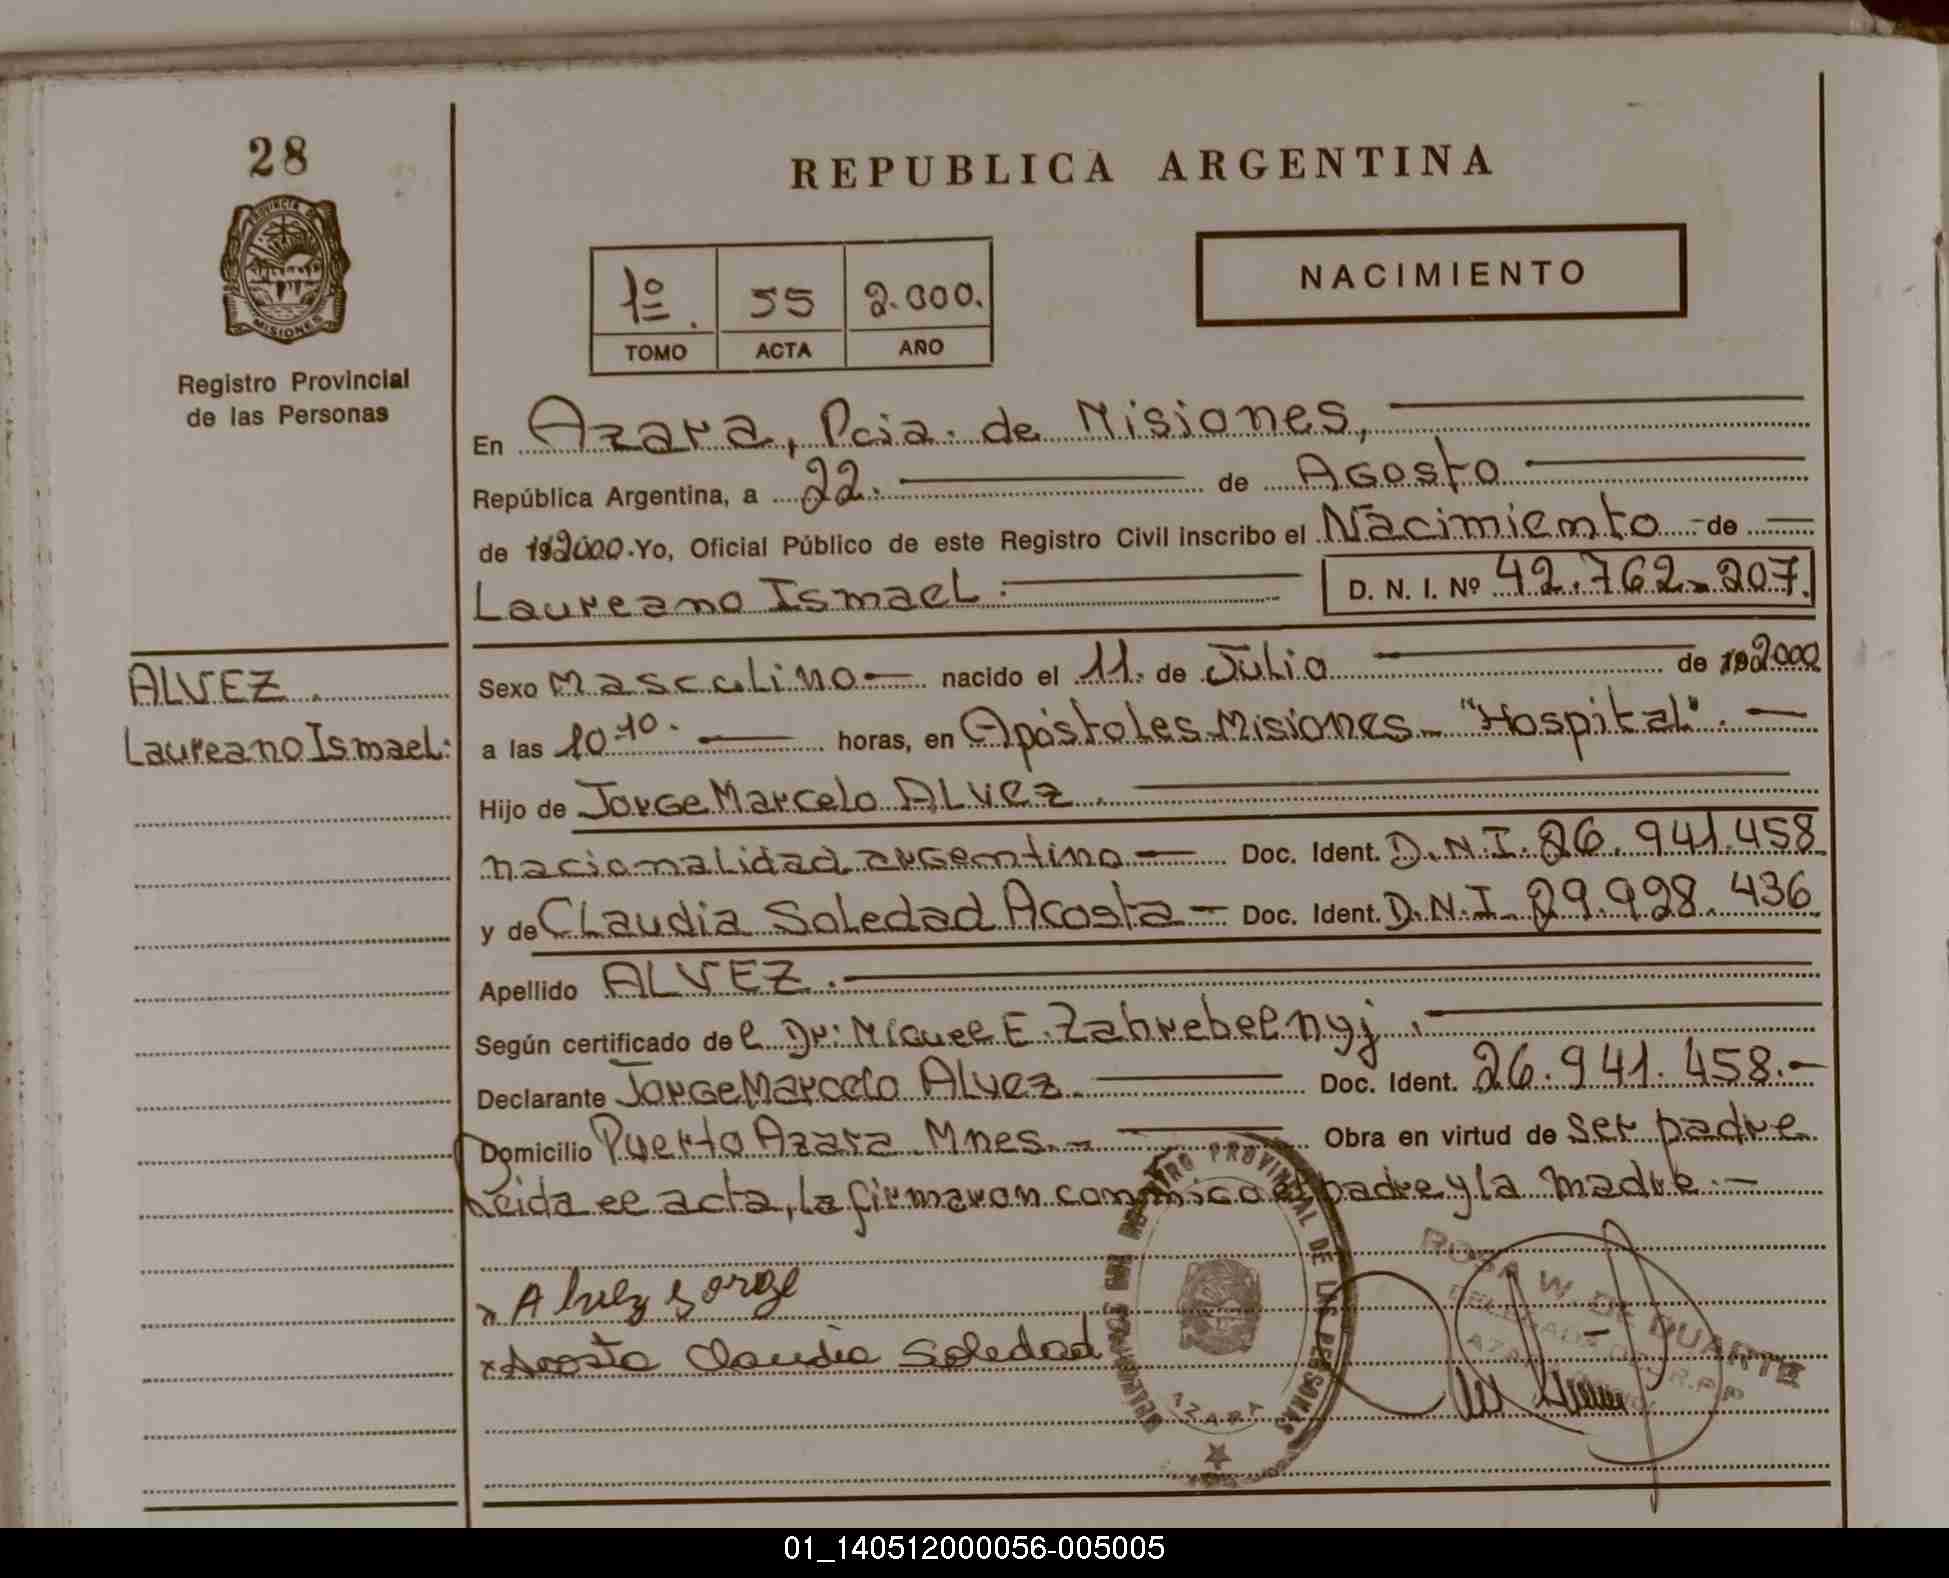 28
PROVINCIA DE
MISIONES
Registro Provincial
de las Personas
REPUBLICA ARGENTINA
1º. 55 2.000.
TOMO ACTA AÑO
NACIMIENTO
En Azara, Pcia. de Misiones,
República Argentina, a 22. de Agosto
de 192000. Yo, Oficial Público de este Registro Civil inscribo el Nacimiento de
Laureano Ismael. D. N. I. Nº 42.762.207.
ALVEZ
Laureano Ismael:
Sexo Masculino nacido el 11. de Julio de 192000
a las 10:10. horas, en Apóstoles Misiones "Hospital".
Hijo de Jorge Marcelo ALvez.
nacionalidad argentino Doc. Ident. D.N.I. 26.941.458
y de Claudia Soledad Acosta Doc. Ident. D.N.I. 29.928.436
Apellido ALVEZ.
Según certificado del Dr: Miguel E. Zahrebelnyj.
Declarante Jorge Marcelo Alvez Doc. Ident. 26.941.458.-
Domicilio Puerto Azara Mnes. Obra en virtud de ser padre
Leida el acta, la firmaron conmigo el padre y la madre.-
x Alvez Jorge
x Acosta Claudia Soledad
REGISTRO PROVINCIAL DE LAS PERSONAS
AZARA
ROSA W. DE DUARTE
DELEGADA R.P.P
AZARA
01_140512000056-005005